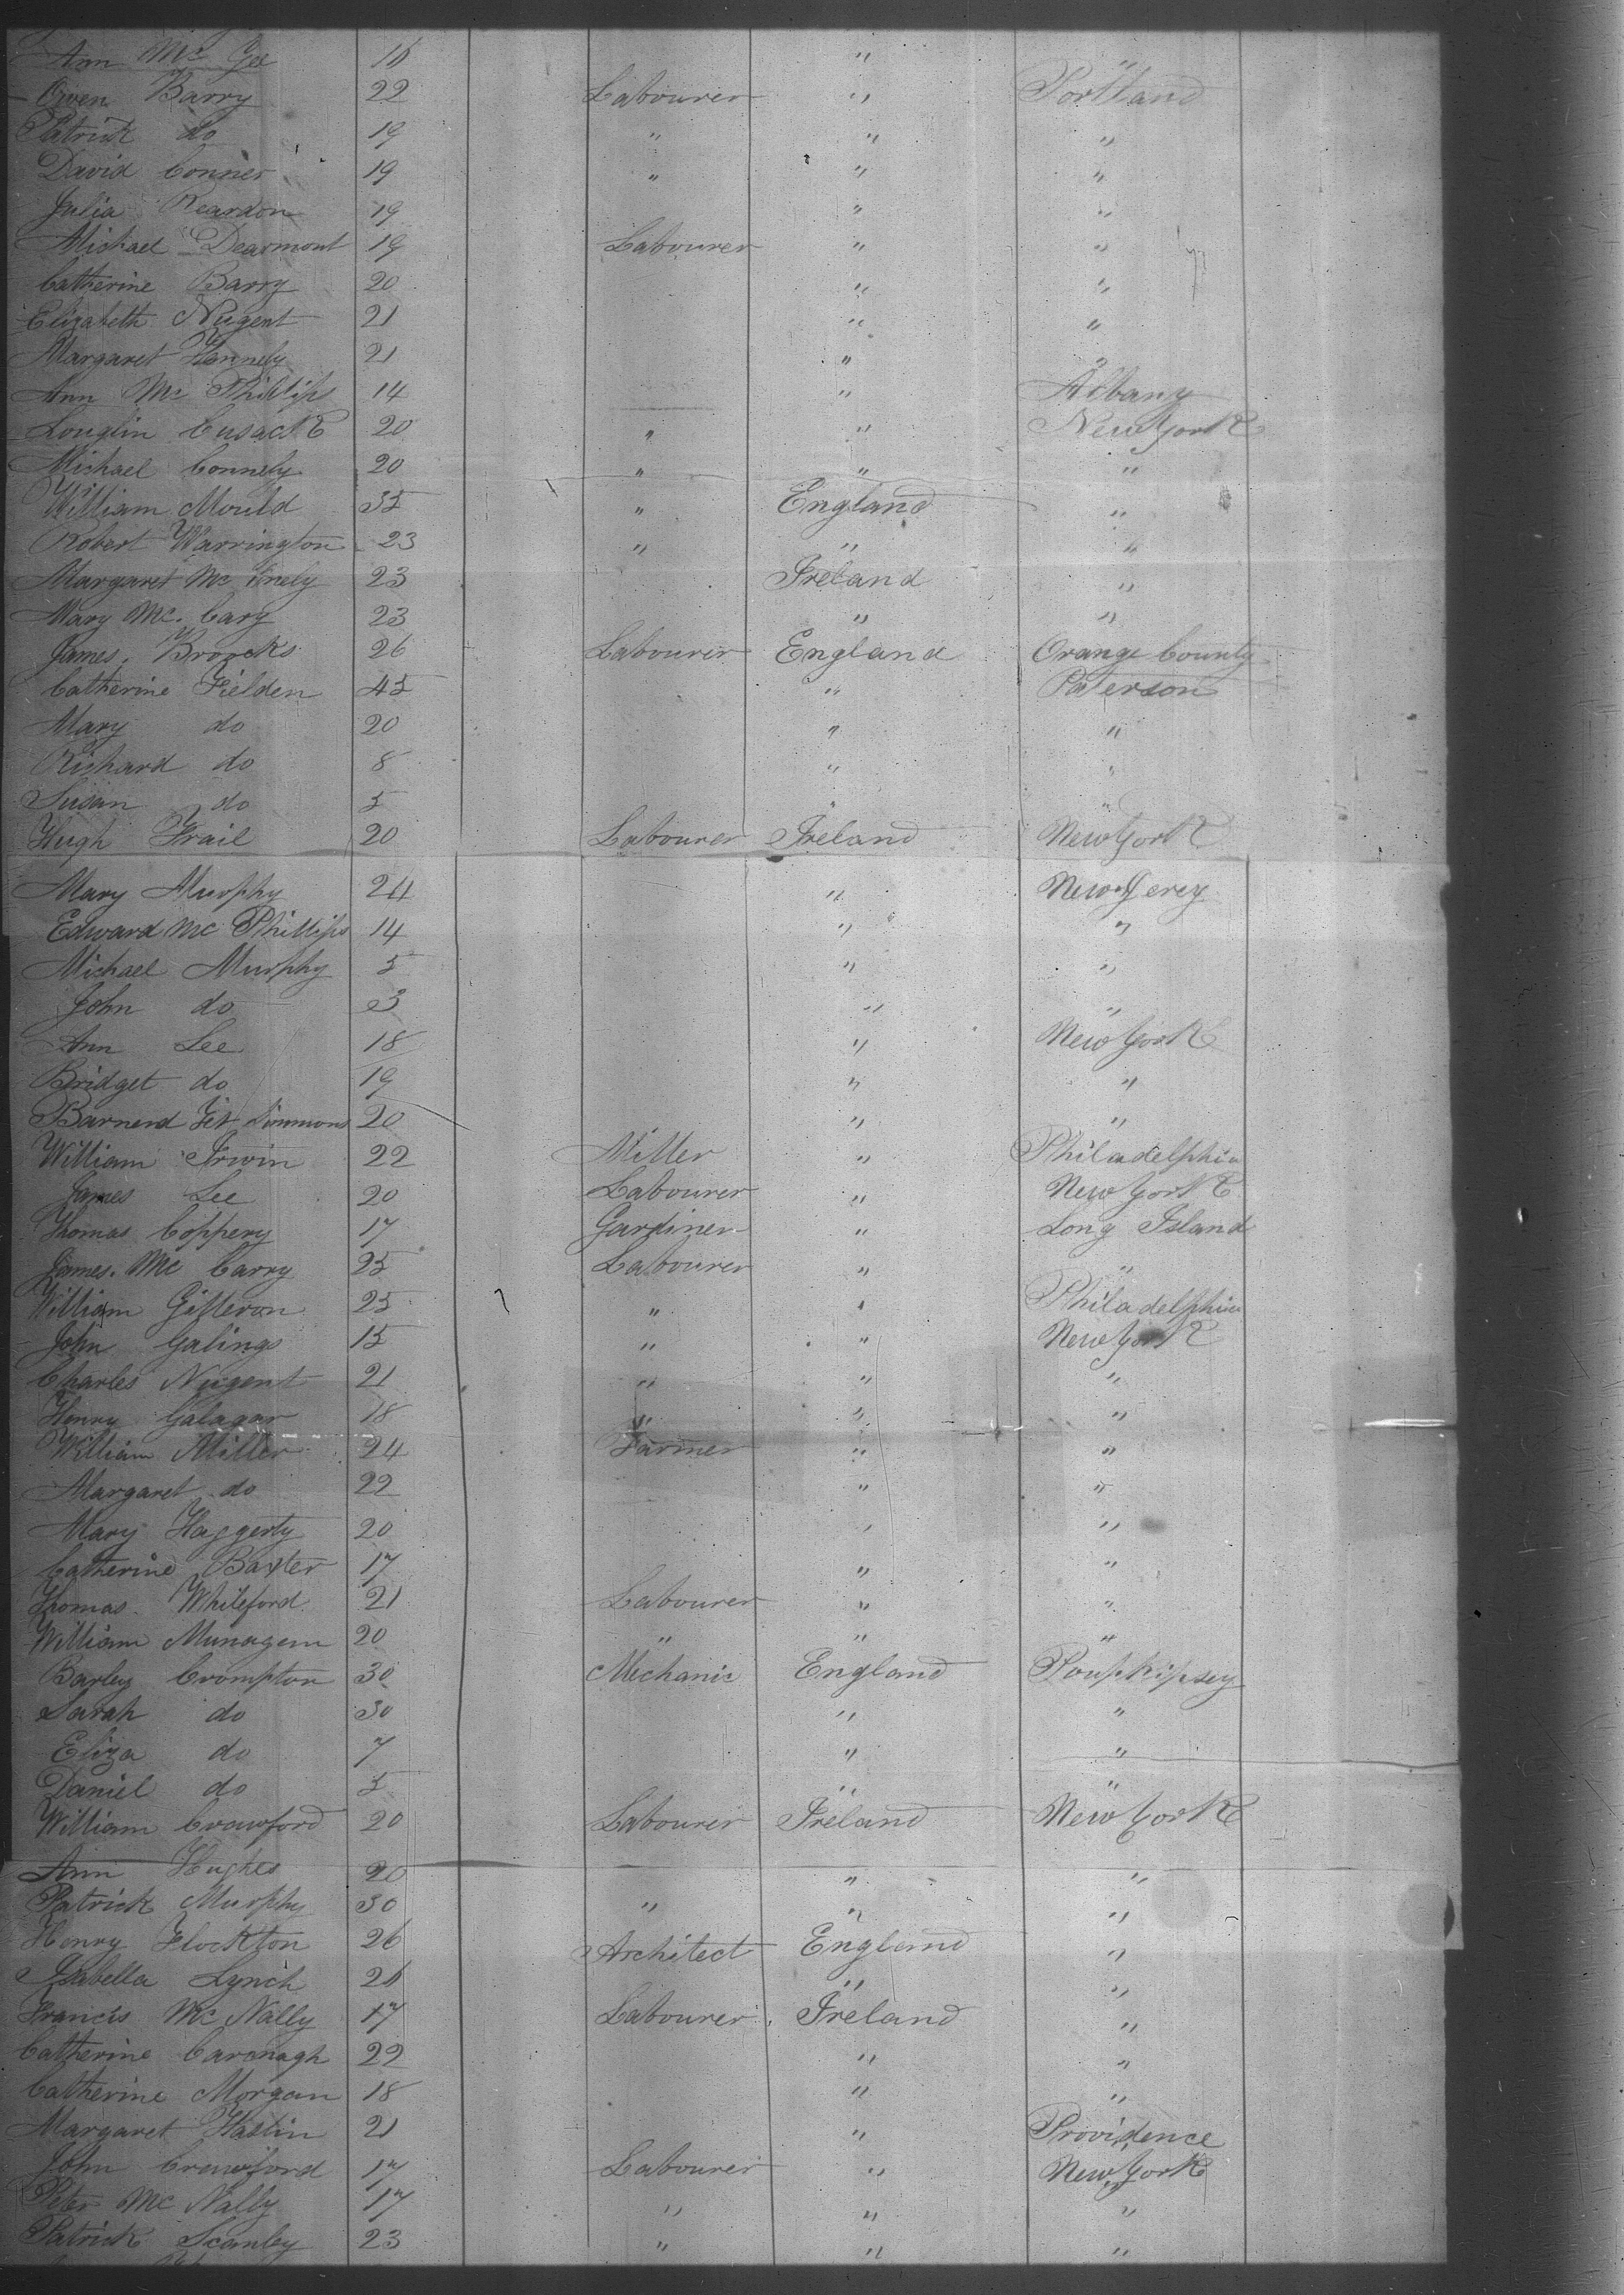 Ann Mc Gee 16 " "
Owen Barry 22 Labourer " Portland
Patrick do 19 " " "
David Conner 19 " " "
Julia Reardon 19 " "
Michael Dearmont 19 Labourer " "
Catherine Barry 20 " "
Elizabeth Nugent 21 " "
Margaret Kennely 21 " "
Ann Mc Phillips 14 " Albany
Louglin Cusack 20 " " New York
Michael Connely 20 " " "
William Mould 35 " England "
Robert Warrington 23 " " "
Margaret Mc 23 Ireland "
Mary Mc. Cary 23 " "
James. Broocks 26 Labourer England Orange County
Catherine Fielden 45 " Paterson
Mary do 20 " "
Richard do 8 " "
Susan do 5 " "
Hugh Frail 20 Labourer Ireland New York
Mary Murphy 24 " New Jerey
Edward Mc Phillips 14 " "
Michael Murphy 5 " "
John do 3 " "
Ann Lee 18 " New York
Bridget do 19 " "
Barnerd Fit Simmons 20 " "
William Irwin 22 Miller " Philadelphia
James Lee 20 Labourer " New York
Thomas Coppery 17 Gardiner " Long Island
James. Mc Carry 25 Labourer " "
William Gilleron 25 " " Philadelphia
John Galings 15 " " New York
Charles Nugent 21 " " "
Henry Galagar 18 " " "
William Miller 24 Farmer " "
Margaret do 22 " "
Mary Haggerty 20 " "
Catherine Baxter 17 " "
Thomas Whiteford 21 Labourer " "
William Munagem 20 " " "
Barley Crompton 30 Mechanic England Poupkipsey
Sarah do 30 " "
Eliza do 7 " "
Daniel do 5 " "
William Crawford 20 Labourer Ireland New York
Ann Hughes 20 " "
Patrick Murphy 30 " " "
Henry Flockton 26 Architect England "
Isabella Lynch 26 " "
Francis Mc Nally 17 Labourer Ireland "
Catherine Cavanagh 22 " "
Catherine Morgan 18 " "
Margaret Haslin 21 " Providence
John Crawford 17 Labourer " New York
Peter Mc Nally 17 " " "
Patrick Scanley 23 " " "